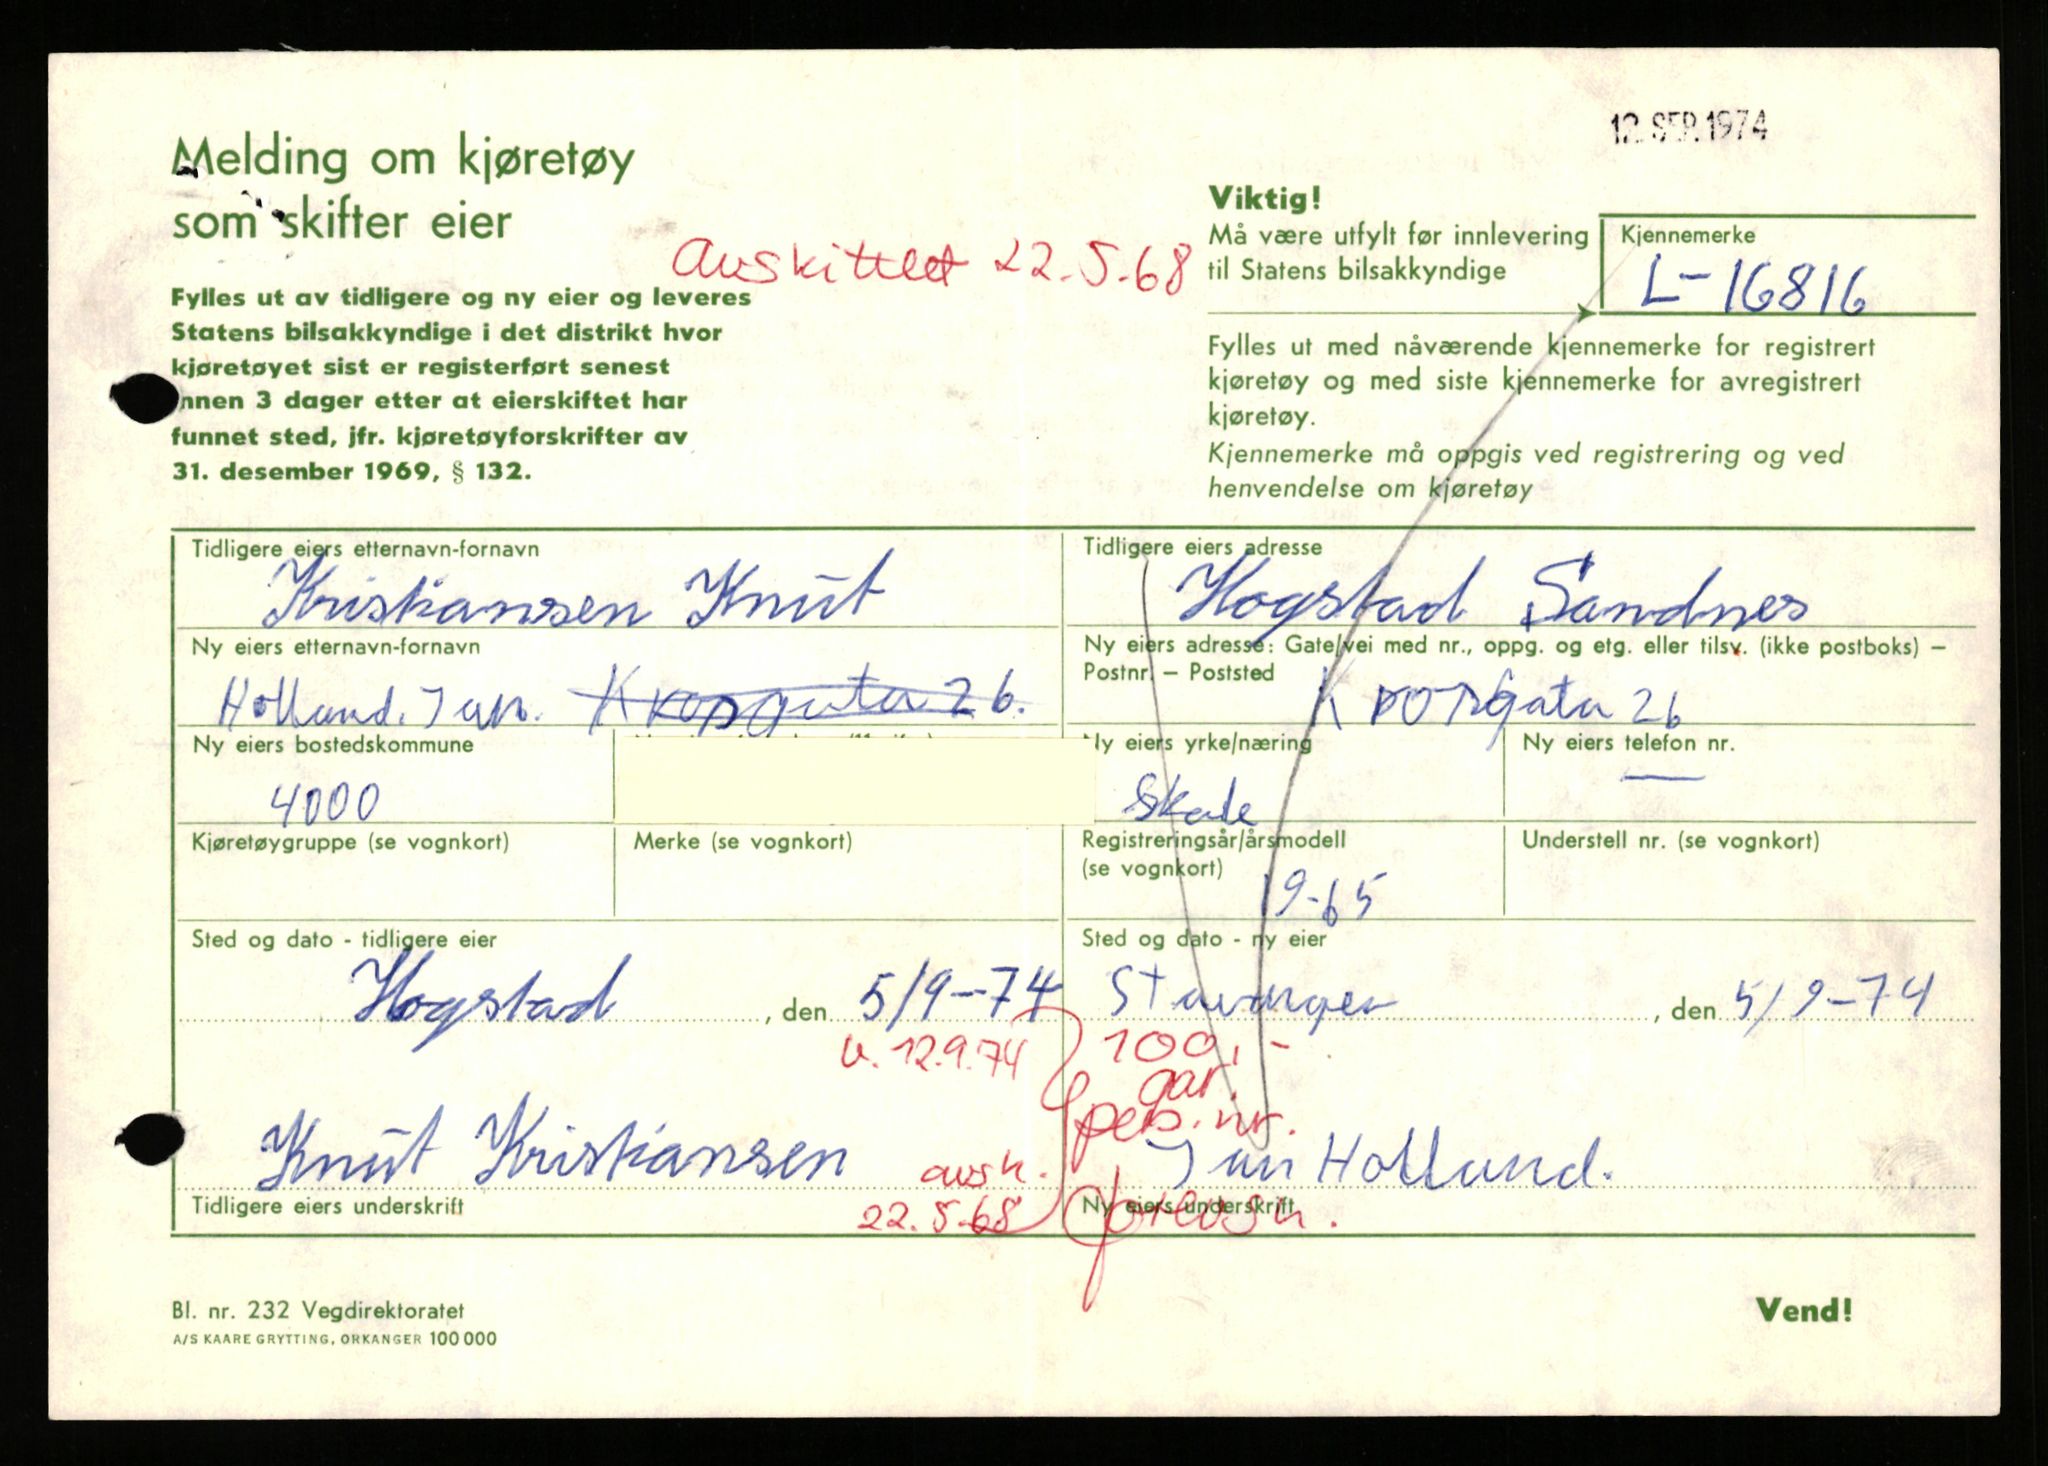 12. SEP. 1974
Melding om kjøretøy
som skifter eier
Avskiltet 22.5.68
Fylles ut av tidligere og ny eier og leveres
Statens bilsakkyndige i det distrikt hvor
kjøretøyet sist er registerført senest
innen 3 dager etter at eierskiftet har
funnet sted, jfr. kjøretøyforskrifter av
31. desember 1969, § 132.
Viktig!
Må være utfylt før innlevering
til Statens bilsakkyndige
Kjennemerke
L-16816
Fylles ut med nåværende kjennemerke for registrert
kjøretøy og med siste kjennemerke for avregistrert
kjøretøy.
Kjennemerke må oppgis ved registrering og ved
henvendelse om kjøretøy
Tidligere eiers etternavn-fornavn
Kristiansen Knut
Tidligere eiers adresse
Hogstad Sandnes
Ny eiers etternavn-fornavn
Holland. Jan.
Ny eiers adresse: Gate/vei med nr., oppg. og etg. eller tilsv. (ikke postboks) –
Postnr. – Poststed
26
Ny eiers bostedskommune
4000
Ny eiers yrke/næring
Ny eiers telefon nr.
—
Kjøretøygruppe (se vognkort)
Merke (se vognkort)
Registreringsår/årsmodell
(se vognkort)
19-65
Understell nr. (se vognkort)
Sted og dato - tidligere eier
Hogstad, den 5/9-74
Sted og dato - ny eier
Stavanger, den 5/9-74
v. 12.9.74
100,-
gar.
pers. nr.
Knut Kristiansen
avsk.
Jan Holland.
Tidligere eiers underskrift
22.5.68
Ny eiers underskrift
Bl. nr. 232 Vegdirektoratet
A/S KAARE GRYTTING, ORKANGER 100 000
Vend!